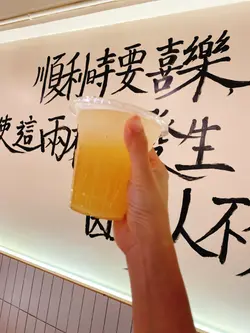 順利時要喜樂,
使這兩 生
因 人不